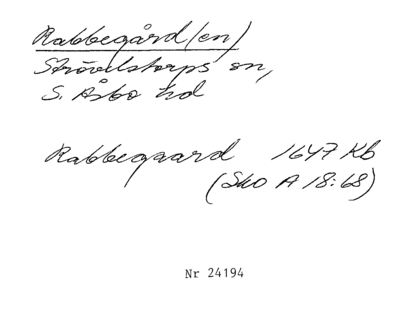 Rabbegård(en)
Strövelstorps sn,
S. Åsbo hd
Rabbegaard 1647 Kb
(Sko A 18:68)
Nr 24194